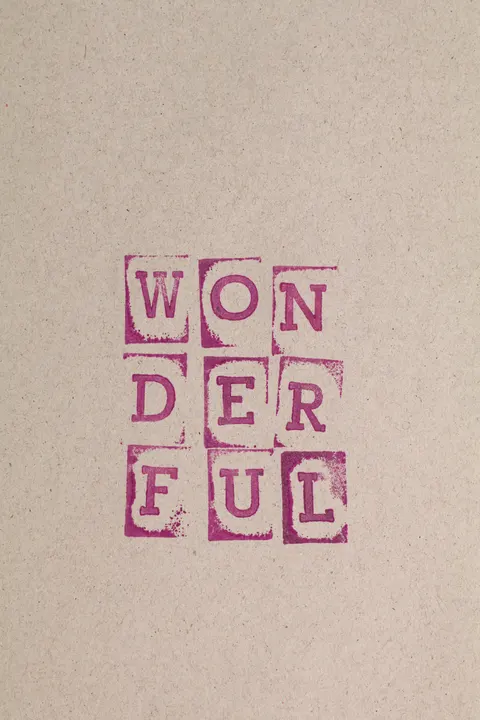 WON
DER
FUL